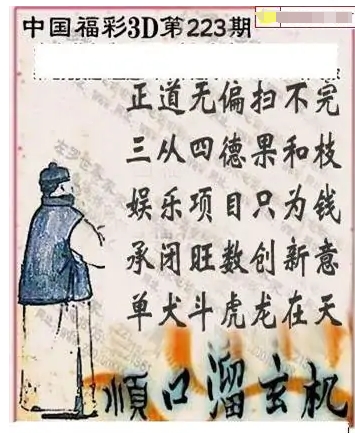 中国福彩3D第223期
正道无偏扫不完
三从四德果和枝
娱乐项目只为钱
承闭旺数创新意
单犬斗虎龙在天
顺口溜玄机